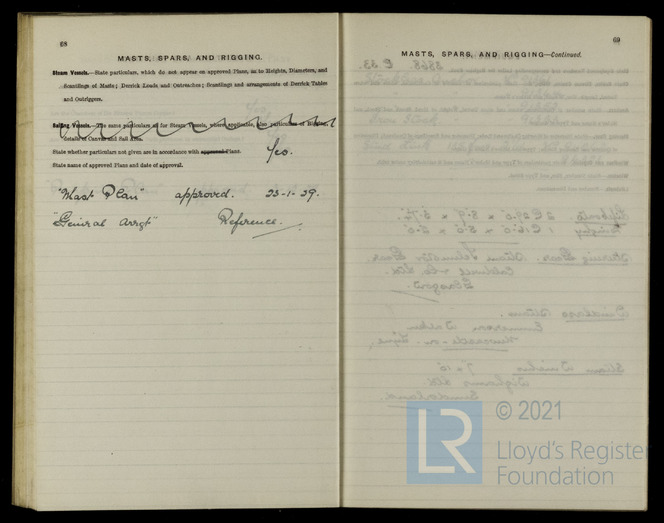 68
MASTS, SPARS, AND RIGGING.
Steam Vessels.—State particulars, which do not appear on approved Plans, as to Heights, Diameters, and
Scantlings of Masts; Derrick Loads and Outreaches; Scantlings and arrangements of Derrick Tables
and Outriggers.
Sailing Vessels.—The same particulars as for Steam Vessels, where applicable, also particulars of Rigging,
details of Canvas and Sail Area.
State whether particulars not given are in accordance with approved Plans. Yes.
State name of approved Plans and date of approval.
"Mast Plan" approved. 23-1-39.
"General Arrgt" Reference.
69
MASTS, SPARS, AND RIGGING—Continued.
© 2021
LR
Lloyd's Register
Foundation